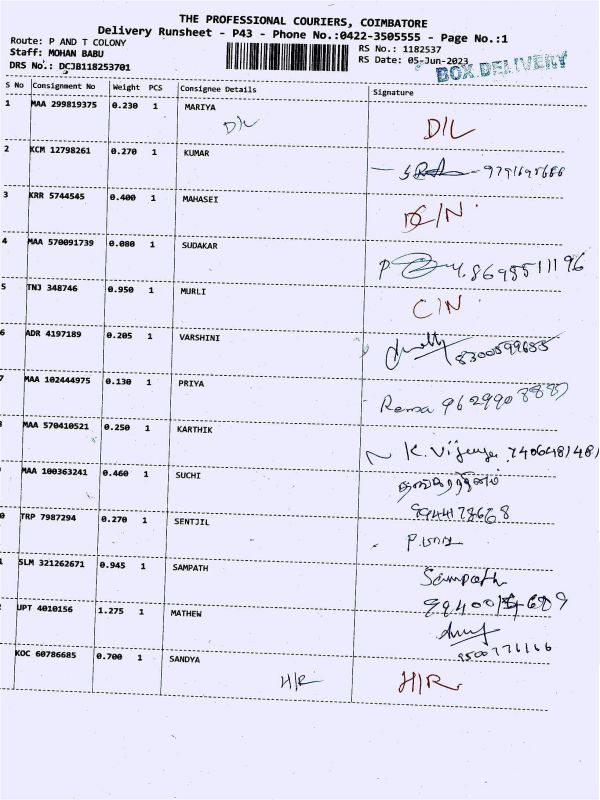 THE PROFESSIONAL COURIERS, COIMBATORE
Delivery Runsheet - P43 - Phone No.:0422-3505555 - Page No.:1
Route: P AND T COLONY
Staff: MOHAN BABU
DRS No.: DCJB118253701
RS No.: 1182537
RS Date: 05-Jun-2023
BOX DELIVERY
S No Consignment No Weight PCS Consignee Details Signature
1 MAA 299819375 0.230 1 MARIYA
D/L D/L
2 KCM 12798261 0.270 1 KUMAR
3 KRR 5744545 0.400 1 MAHASEI
4 MAA 570091739 0.080 1 SUDAKAR
8695511196
5 TNJ 348746 0.950 1 MURLI
C/N
6 ADR 4197189 0.205 1 VARSHINI
8300599685
7 MAA 102444975 0.130 1 PRIYA
Rama
MAA 570410521 0.250 1 KARTHIK
K. 7406481481
MAA 100363241 0.460 1 SUCHI
9944178668
0 TRP 7987294 0.270 1 SENTJIL
SLM 321262671 0.945 1 SAMPATH
Sampath
UPT 4010156 1.275 1 MATHEW
9500771166
KOC 60786685 0.700 1 SANDYA
H/R H/R